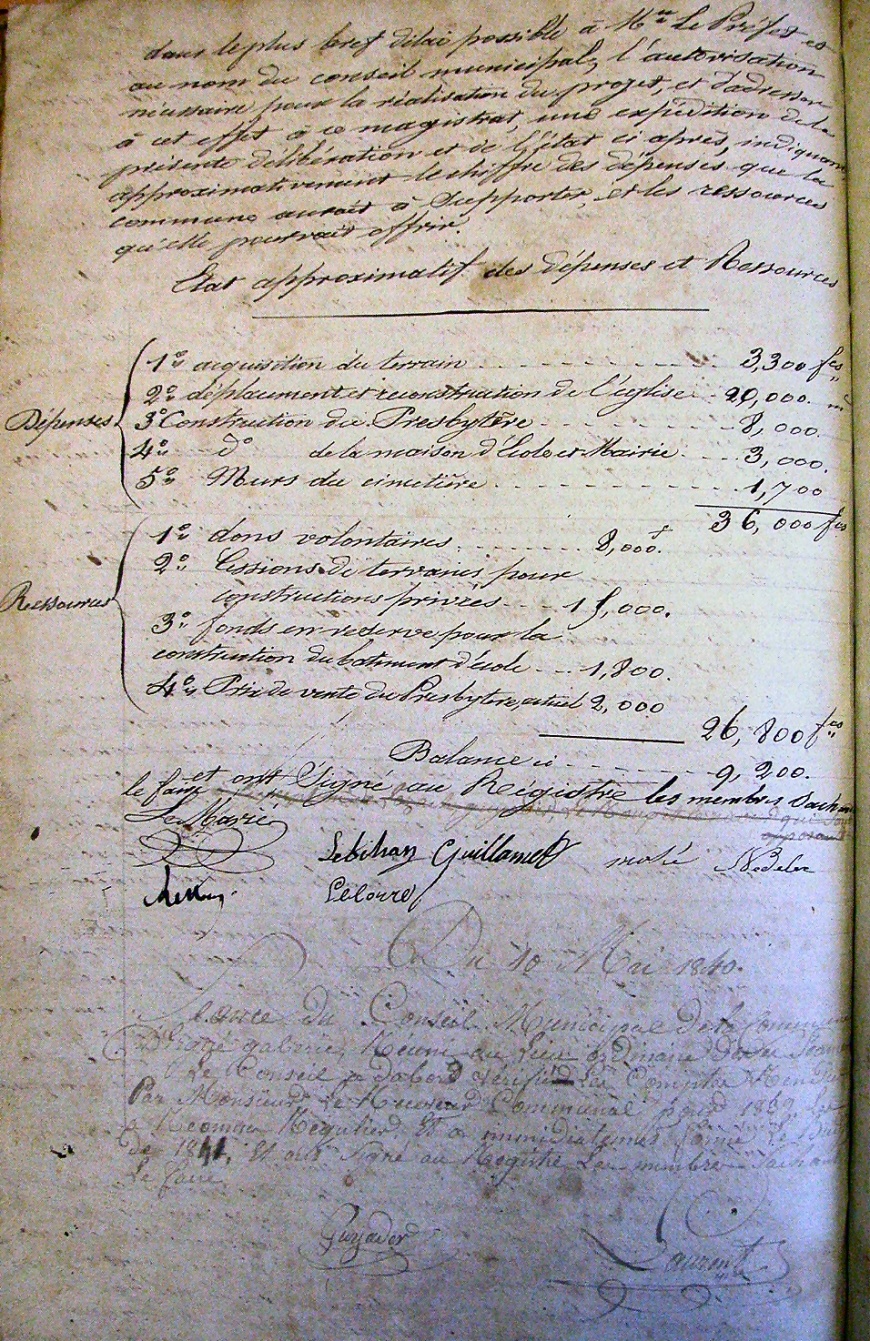 dans le plus bref délai possible à Mr. Le Préfet et
au nom du conseil municipal, l'autorisation
nécessaire pour la réalisation du projet, et d'adresser
à cet effet à ce magistrat, une expédition de la
présente délibération et de l'état ci après, indiquant
approximativement le chiffre des dépenses que la
commune aurait à supporter, et les ressources
qu'elle pourrait offrir.
Etat approximatif des dépenses et Ressources
Dépenses
1° acquisition du terrain 3,300 fcs
2° déplacement et reconstruction de l'église 20,000
3° Construction du Presbytère 8,000
4° d° de la maison d'Ecole et Mairie 3,000.
5° Murs du cimetière 1,700
36,000 fcs
Ressources
1° dons volontaires 8,000f.
2° Cessions de terrains pour
constructions privées 15,000.
3° fonds en réserve pour la
construction du batiment d'école 1,800.
4° Prix de vente du Presbytère, actuel 2,000
26,800 fcs
Balance ci 9,200.
et ont Signé au Régistre les membres Sachant
le faire
Le Marié
Lebihan Guillamet Nédelec
Du 10 Mai 1840.
Séance du Conseil Municipal de la Commune
Réuni au Lieu ordinaire de ses Séances
Le Conseil a dabord vérifié Les Comptes Rendus
Par Monsieur Le Receveur Communal pour 1839. Les
a Reconnu Régulier, Et a immédiatement formé Le Budget
de 1841, Et ont Signé au Registre Les membres Sachant
Le faire
Laurent